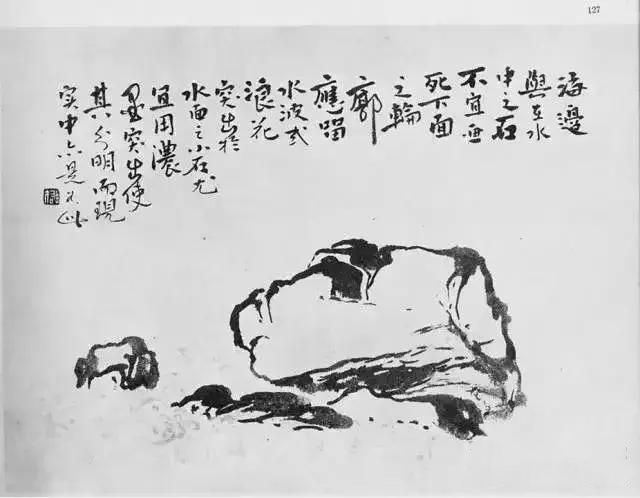 127
海邊
與在水
中之石
不宜画
死下面
之輪
廓
應留
水波或
浪花
突出於
水面之小石尤
宜用濃
墨突出使
其分明而現
实中亦是如此